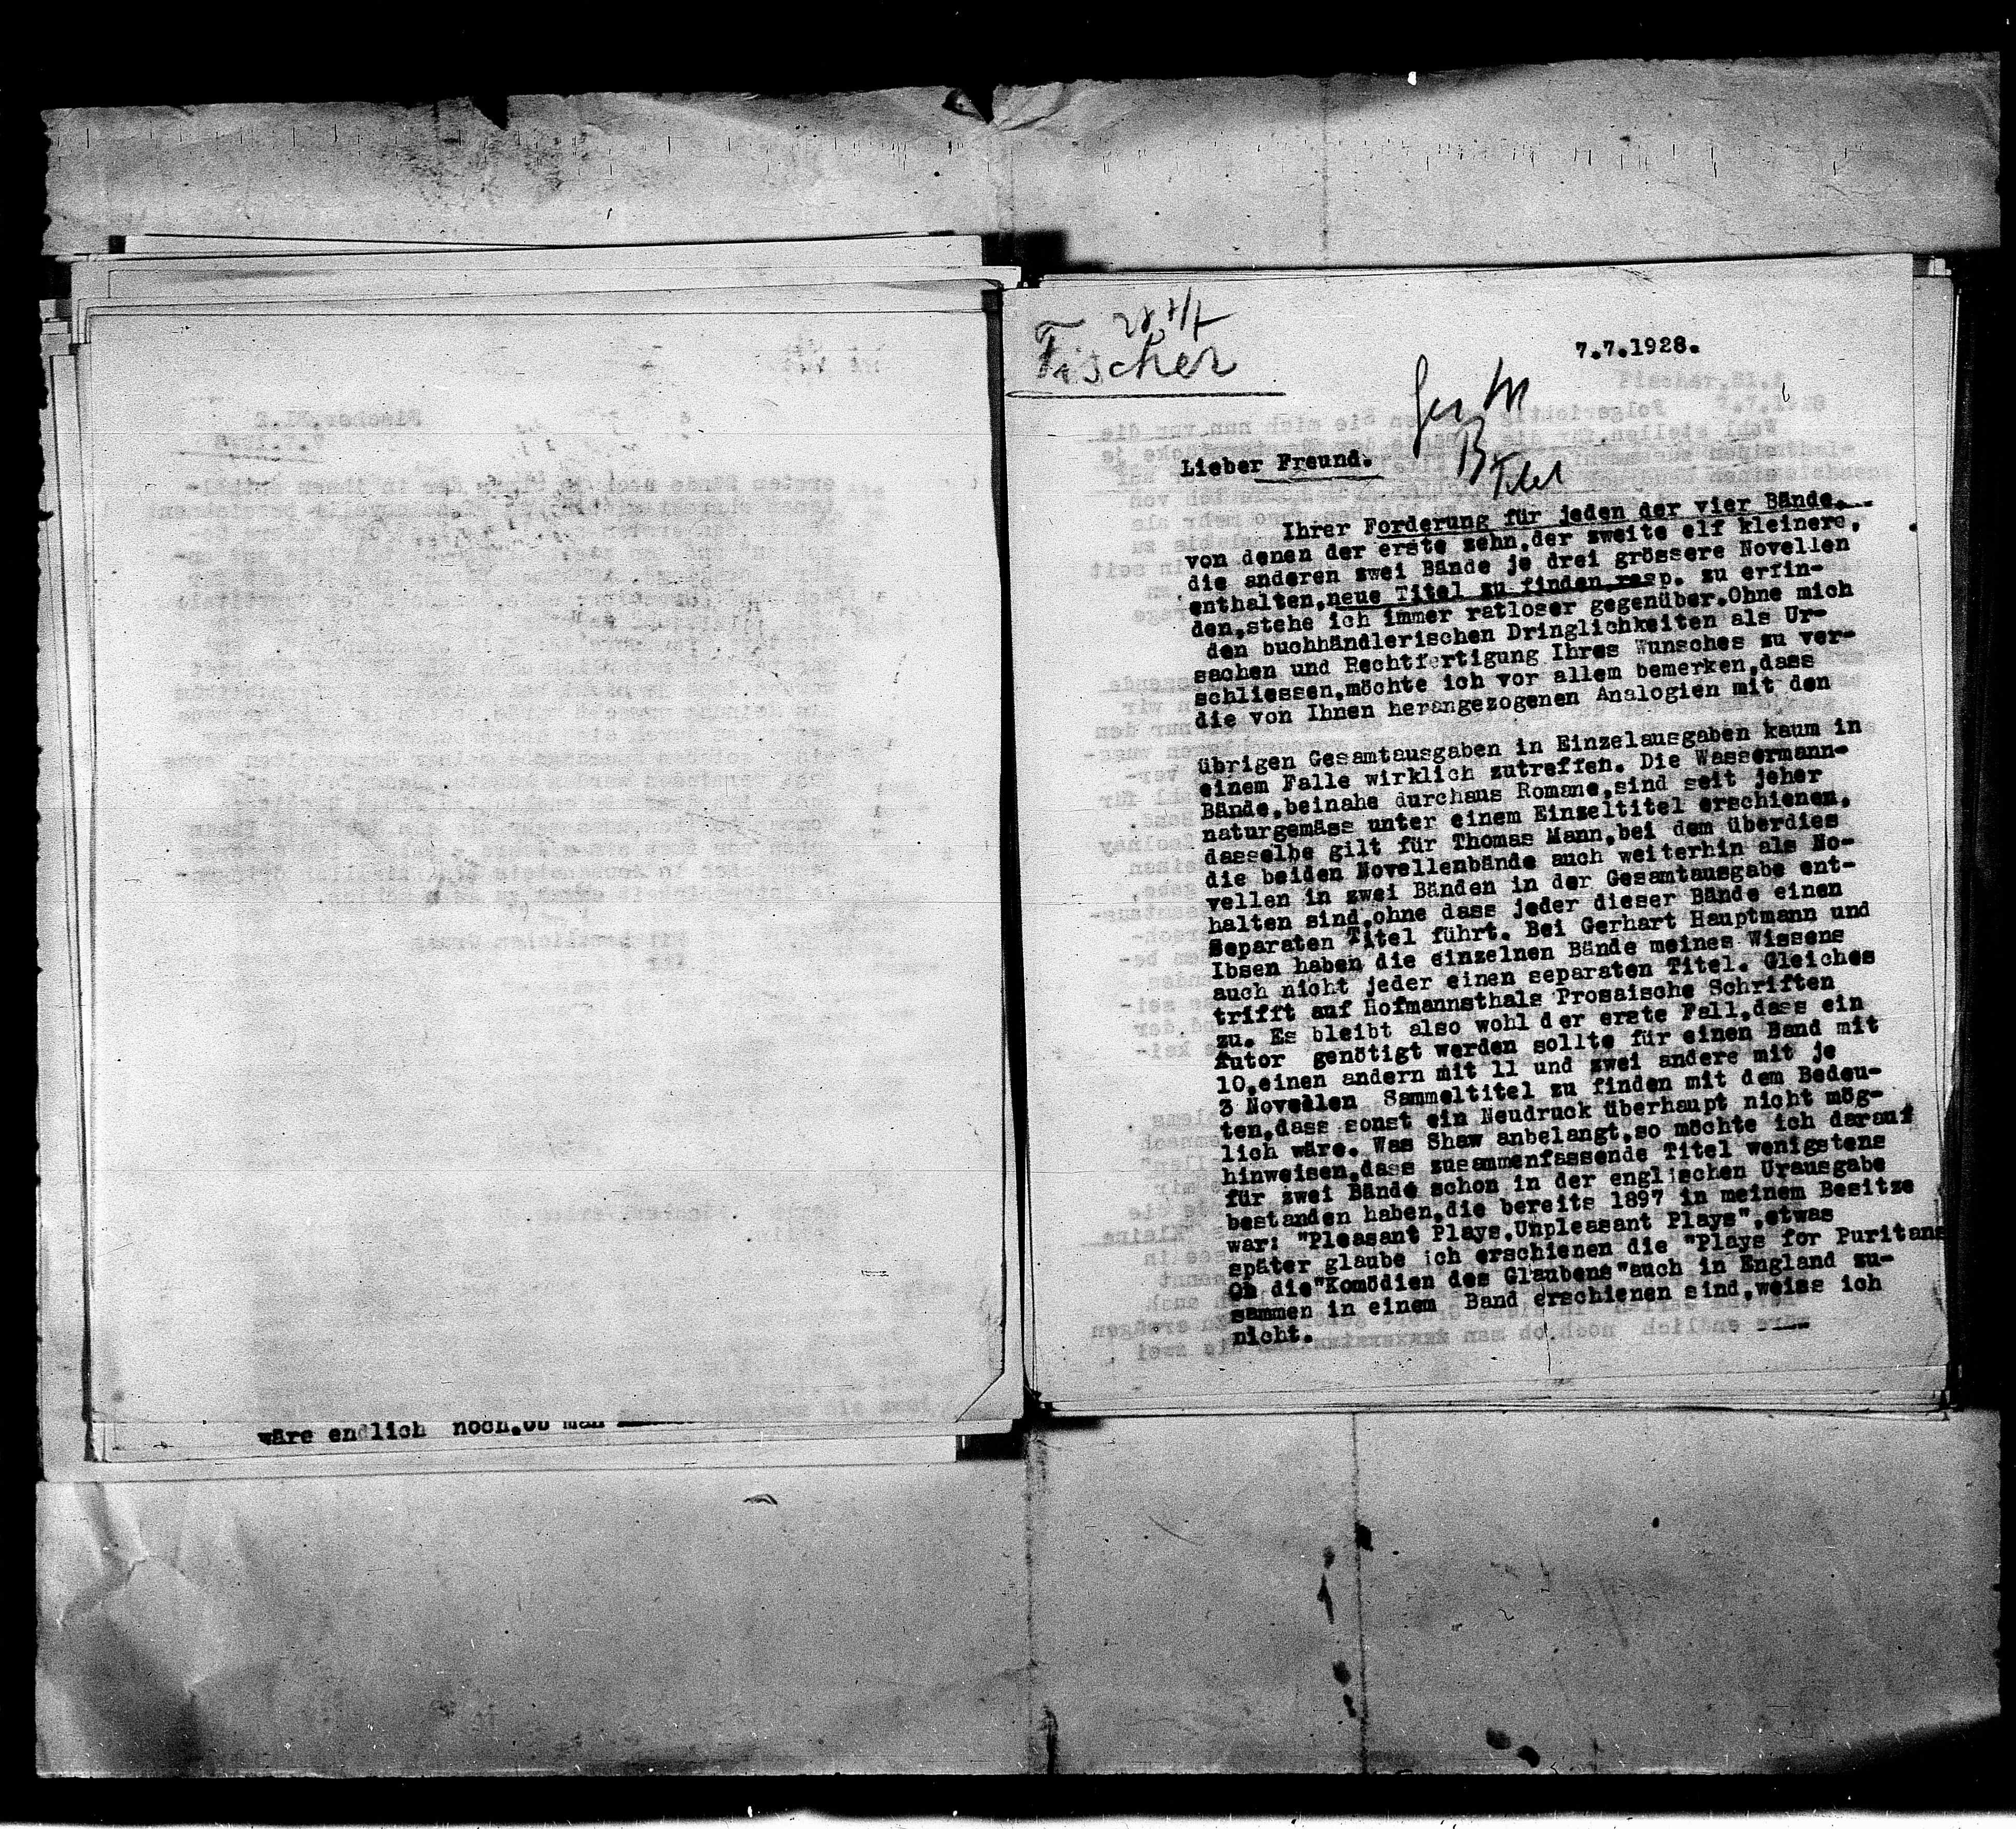 wäre endlich noch,ob man
Fischer
7.7.1928.
Lieber Freund.
Ihrer Forderung für jeden der vier Bände,
von denen der erste zehn,der zweite elf kleinere,
die anderen zwei Bände je drei grössere Novellen
enthalten,neue Titel zu finden,resp. zu erfin-
den,stehe ich immer ratloser gegenüber.Ohne mich
den buchhändlerischen Dringlichkeiten als Ur-
sachen und Rechtfertigung Ihres Wunsches zu ver-
schliessen,möchte ich vor allem bemerken,dass
die von Ihnen herangezogenen Analogien mit den
übrigen Gesamtausgaben in Einzelausgaben kaum in
einem Falle wirklich zutreffen. Die Wassermann-
Bände,beinahe durchaus Romane,sind seit jeher
naturgemäss unter einem Einzeltitel erschienen,
dasselbe gilt für Thomas Mann,bei dem überdies
die beiden Novellenbände auch weiterhin als No-
vellen in zwei Bänden in der Gesamtausgabe ent-
halten sind,ohne dass jeder dieser Bände einen
separaten Titel führt. Bei Gerhart Hauptmann und
Ibsen haben die einzelnen Bände meines Wissens
auch nicht jeder einen separaten Titel. Gleiches
trifft auf Hofmannsthals Prosaische Schriften
zu. Es bleibt also wohl der erste Fall,dass ein
Autor genötigt werden sollte für einen Band mit
10,einen andern mit 11 und zwei andere mit je
3 Novellen Sammeltitel zu finden mit dem Bedeu-
ten,dass sonst ein Neudruck überhaupt nicht mög-
lich wäre. Was Shaw anbelangt,so möchte ich darauf
hinweisen,dass zusammenfassende Titel wenigstens
für zwei Bände schon in der englischen Urausgabe
bestanden haben,die bereits 1897 in meinem Besitze
war: "Pleasant Plays,Unpleasant Plays",etwas
später glaube ich erschienen die "Plays for Puritans
Ob die"Komödien des Glaubens"auch in England zu-
sammen in einem Band erschienen sind,weiss ich
nicht.